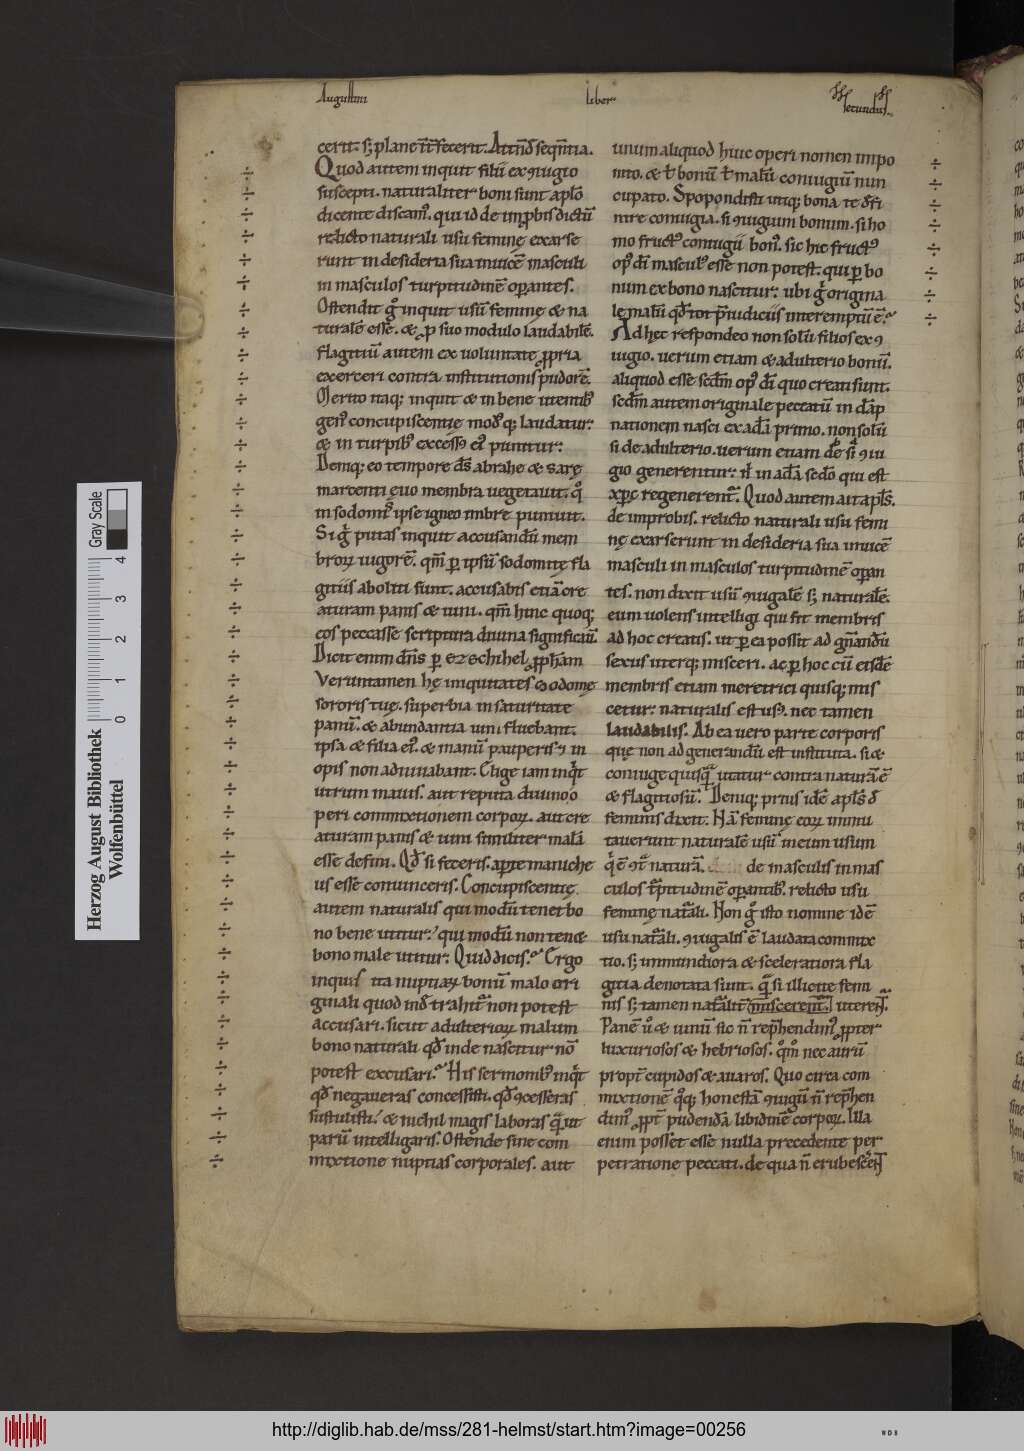 Augustini Liber Secundus
cerit. s; plane n̄ fecerit. Attnd̄ seqn̄tia.
Quod autem inquit filii ex ꝯiugio
suscepti. naturaliter boni sunt aplo
dicente discam. qui id de inpbis dictū
relicto naturali usu feminę exarse
runt in desideria sua inuicē masculi
in masculos turpitudinē opantes.
Ostendit g inquit usū feminę & na
turalē esse. & p suo modulo laudabilē.
flagitiū autem ex uoluntate ppria
exerceri contra institutionis pudorē.
Merito itaq; inquit & in bene utentib
gen concupiscentię modq; laudatur.
& in turpib excess ei punitur.
Deniq; eo tempore ds abrahę & sarę
marcenti ęuo membra uegetauit. q
in sodomis ipse igneo imbre puniuit.
Si g putas inquit accusandū mem
broꝝ uigorē. qm p ipsū sodomitę fla
gitiis aboliti sunt. accusabis etiā cre
aturam panis & uini. qm hinc quoq;
eos peccasse scriptura diuina significauit.
Dicit enim dns p ezechihel ppham
Veruntamen hę iniquitates sodomę
sororis tuę. superbia in saturitate
panū. & abundantia uini fluebant.
ipsa & filia ei. & manū pauperis & in
opis non adiuuabant. Elige iam inqt
utrum mauis. aut reputa diuino o
peri commixtionem corpoꝝ. aut cre
aturam panis & uini similiter malā
esse defini. Qd si feceris. apte maniche
us esse conuinceris. Concupiscentię
autem naturalis qui modū tenet bo
no bene utitur. qui modū non tenet
bono male utitur. Quid dicis. Ergo
inquis ita nuptiaꝝ bonū malo ori
ginali quod inde trahitur non potest
accusari. sicut adulterioꝝ malum
bono naturali qd inde nascitur nō
potest excusari. His sermonib inqt
qd negaueras concessisti. qd ꝯcesseras
sustulisti. & nichil magis laboras quā ut
parū intelligaris. Ostende sine com
mixtione nuptias corporales. aut
unum aliquod huic operi nomen inpo
nito. & t bonū t malū coniugiū nun
cupato. Spopondisti utiq; bona te defi
nire coniugia. si ꝯiugium bonum. si ho
mo fruct coniugii bon. sic hic fruct
op di mascul esse non potest. qui p bo
num ex bono nascitur. ubi g origina
le malū qd tot p̄iudiciis interemptū ē.
Ad hęc respondeo non solū filios ex ꝯ
iugio. uerum etiam & adulterio bonū.
aliquod esse scdm op di quo creati sunt.
scdm autem originale peccatū in dāp
nationem nasci ex adā primo. non solū
si de adulterio. uerum etiam de ꝯiu
gio generentur. nisi in adā scdo qui est
xpc regenerent. Quod autem ait apls.
de improbis. relicto naturali usu femi
nę exarserunt in desideria sua inuicē
masculi in masculos turpitudinē opan
tes. non dixit usū ꝯiugalē s; naturalē.
eum uolens intelligi qui fit membris
ad hoc creatis. ut p ea possit ad gnandū
sexus uterq; misceri. ac p hoc cū eisdē
membris etiam meretrici quisq; mis
cetur. naturalis est us. nec tamen
laudabilis. Ab ea uero parte corporis
quę non ad generandū est instituta. si &
coniuge quisq utatur contra naturā ē
& flagitiosū. Deniq; prius idē apls de
feminis dixit. Nā feminę eoꝝ inmu
tauerunt naturalē usū in eum usum
qi ē ꝯt naturā. de masculis in mas
culos turpitudinē opantib. relicto usu
feminę natali. Non g isto nomine idē
usu natali. ꝯiugalis ē laudata commix
tio. s; inmundiora & sceleratiora fla
gitia denotata sunt. q si illicite femi
nis s; tamen natalit miscerent uterent.
Panē u & uinū sic n rephendim ppter
luxuriosos & hebriosos. qm nec aurū
propt cupidos & auaros. Quo circa com
mixtionē qq; honestā ꝯiugū n rephen
dim ppt pudendā libidinē corpoꝝ. Illa
enim posset esse nulla precedente per
petratione peccati. de qua n erubescerent
Herzog August Bibliothek
Wolfenbüttel
0 1 2 3 4
Gray Scale
http://diglib.hab.de/mss/281-helmst/start.htm?image=00256